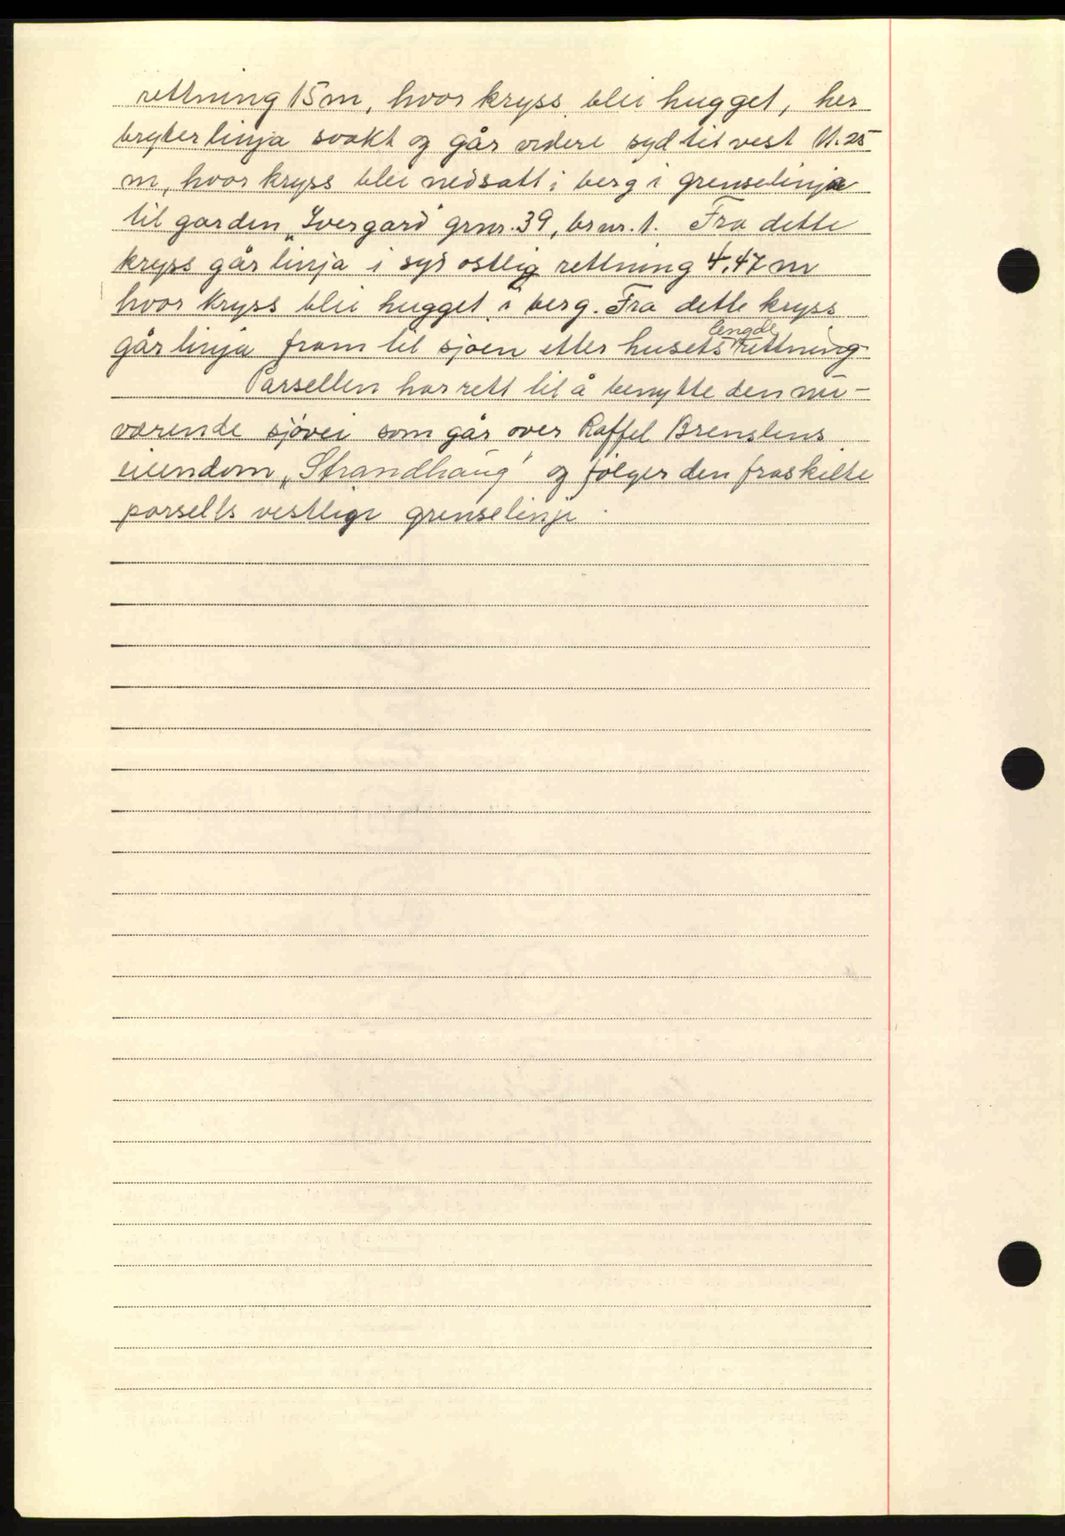 rettning 15 m, hvor kryss blei hugget, her
bryter linja svakt og går videre syd til vest 11.25
m, hvor kryss blei nedsatt i berg i grenselinja
til garden „Ivergard" grnr. 39, brnr. 1. Fra dette
kryss går linja i syd ostlig rettning 4.47 m
hvor kryss blei hugget i berg. Fra dette kryss
går linja fram til sjøen etter husets lengde rettning
Parsellen har rett til å benytte den nu-
værende sjövei som går over Raffel Brenslens
eiendom „Strandhaug" og følger den fraskilte
parsells vestlige grenselinje.